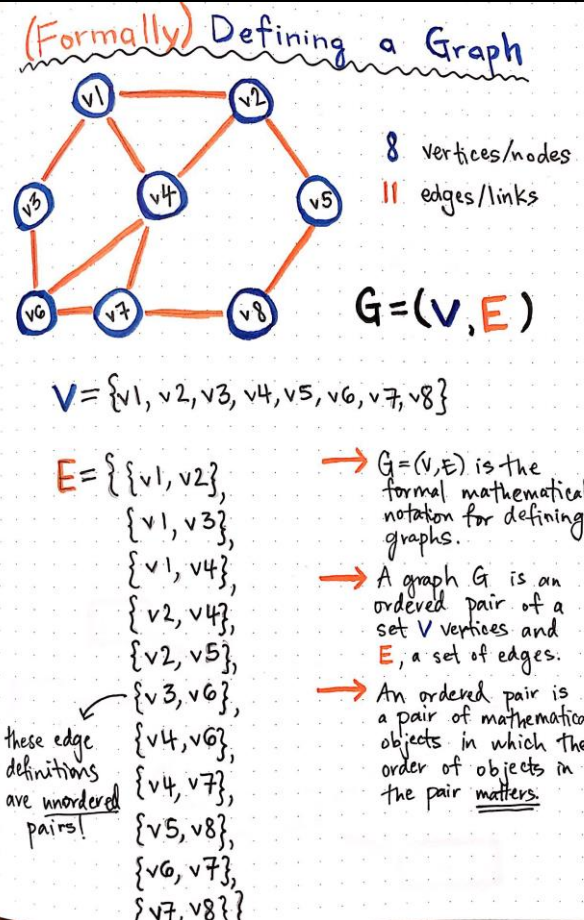 (Formally) Defining a Graph
v1
v2
v3
v4
v5
v6
v7
v8
8 vertices/nodes
11 edges/links
G=(V,E)
V={v1, v2, v3, v4, v5, v6, v7, v8}
E={{v1, v2},
{v1, v3},
{v1, v4},
{v2, v4},
{v2, v5},
{v3, v6},
{v4, v6},
{v4, v7},
{v5, v8},
{v6, v7},
{v7, v8}}
these edge
definitions
are unordered
pairs!
→ G=(V,E) is the
formal mathematical
notation for defining
graphs.
→ A graph G is an
ordered pair of a
set V vertices and
E, a set of edges.
→ An ordered pair is
a pair of mathematica
objects in which the
order of objects in
the pair matters.